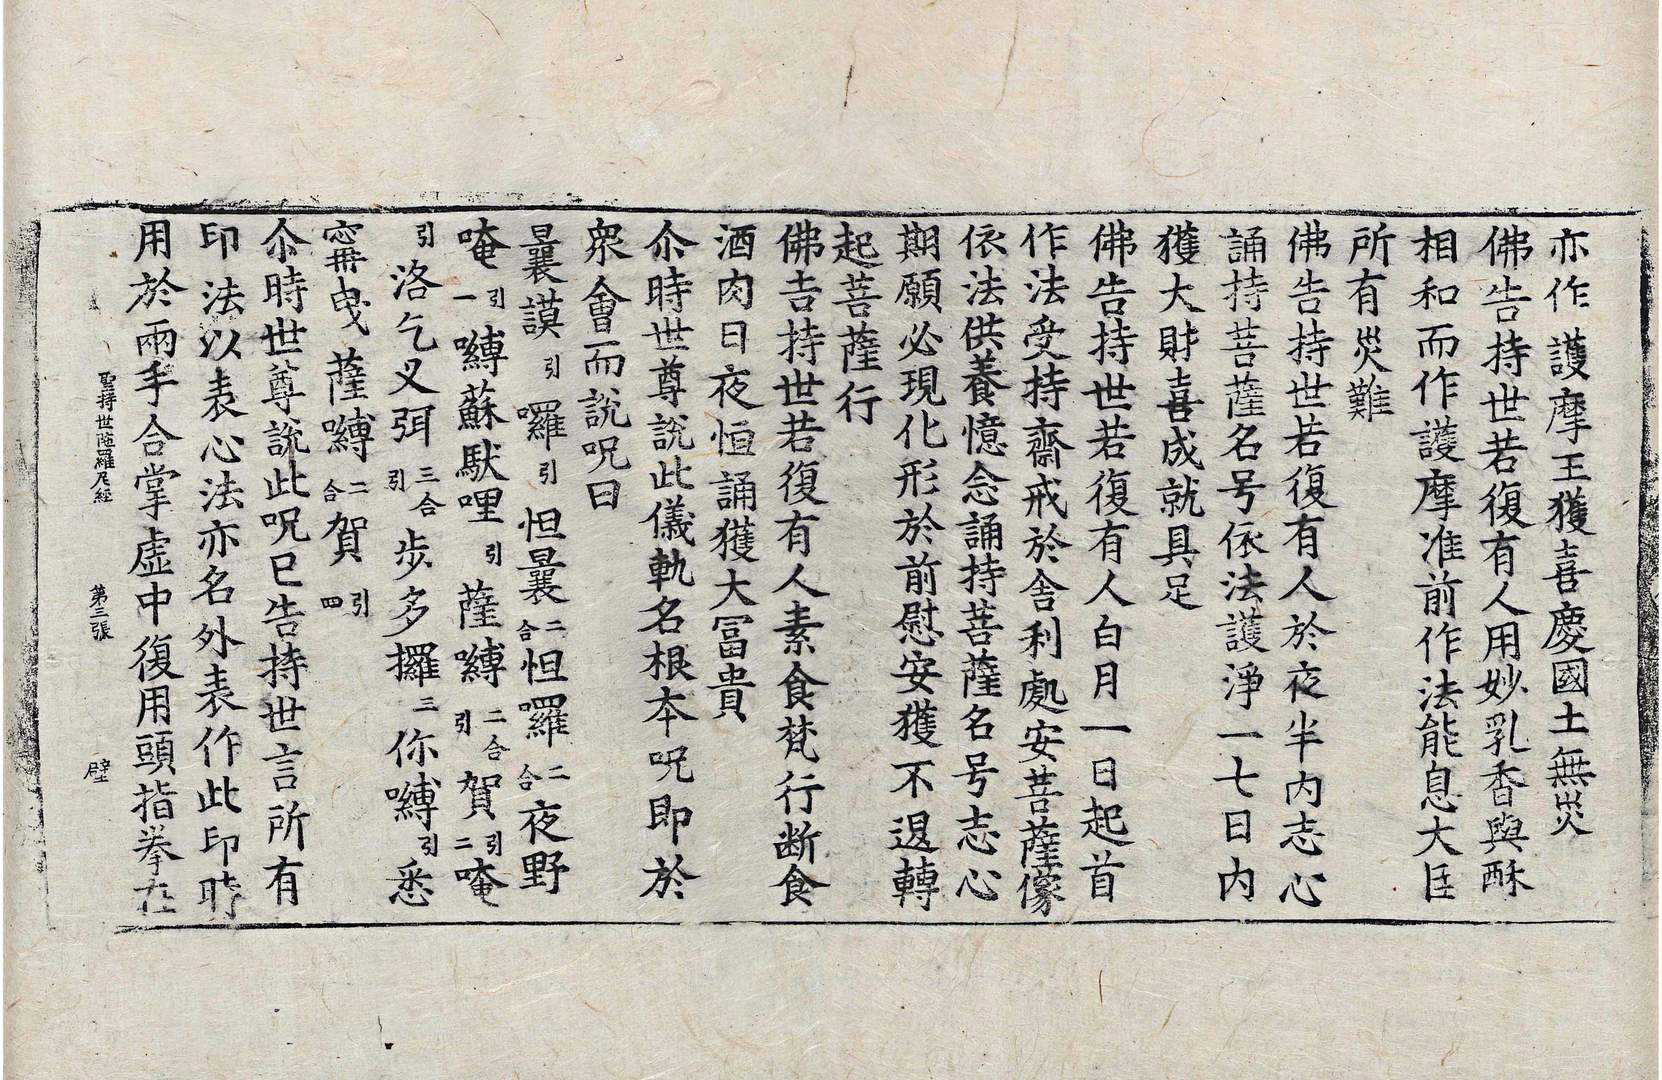 亦作護摩王獲喜慶國土無災
佛告持世若復有人用妙乳香與酥
相和而作護摩准前作法能息大臣
所有災難
佛告持世若復有人於夜半內志心
誦持菩薩名号依法護淨一七日內
獲大財喜成就具足
佛告持世若復有人白月一日起首
作法受持齋戒於舍利處安菩薩像
依法供養憶念誦持菩薩名号志心
期願必現化形於前慰安獲不退轉
起菩薩行
佛告持世若復有人素食梵行断食
酒肉日夜恒誦獲大冨貴
尒時世尊說此儀軌名根本呪即於
衆會而說呪曰
曩謨引囉引怛曩二合怛囉二合夜野
唵引一嚩蘇馱哩引薩嚩二合引賀引二唵
引洛乞叉弭三合引步多攞三你嚩引悉
甯曳薩嚩二合賀引四
尒時世尊說此呪已告持世言所有
印法以表心法亦名外表作此印時
用於兩手合掌虛中復用頭指拳在
聖持世陁羅尼經 第三張 壁